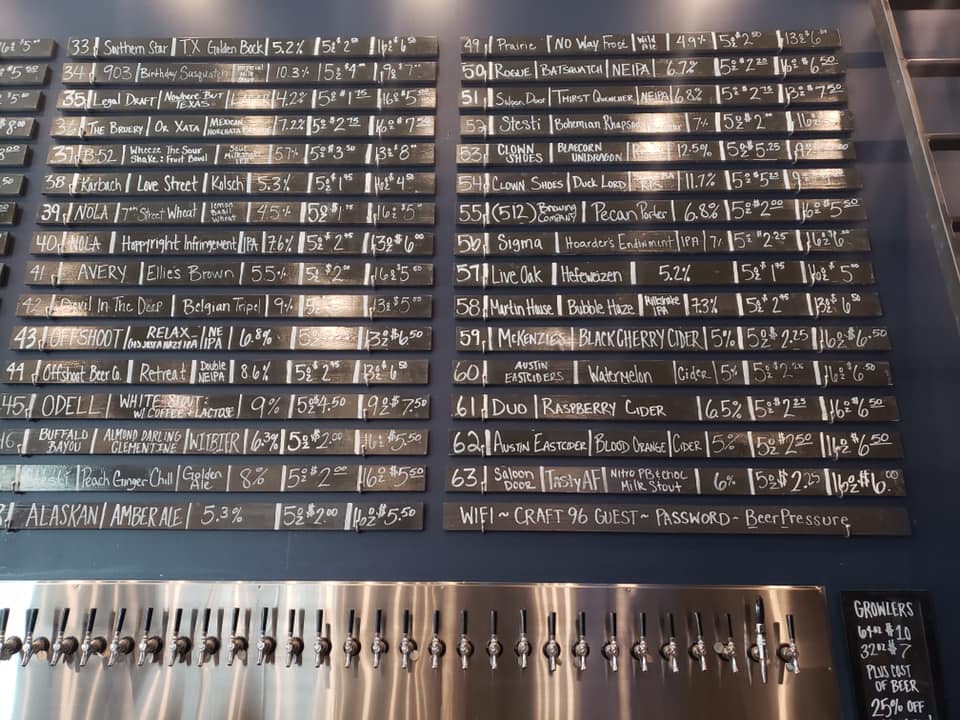 16oz $5
33 Southern Star | TX Golden Bock | 5.2% | 5oz $2 | 16oz $6
34 903 | Birthday Sasquatch | Imperial Milk Stout | 10.3% | 5oz $4 | 9oz $7
35 Legal Draft | Nowhere But Texas | 4.2% | 5oz $1.75 | 16oz $5
The Bruery | Or Xata | Mexican Horchata | 7.2% | 5oz $2.75 | 16oz $7
$8.00
37 B-52 | Wheeze The Sour Shake: Fruit Bowl | Sour Milkshake IPA | 5.7% | 5oz $3.50 | 13oz $8
38 Karbach | Love Street | Kolsch | 5.3% | 5oz $1.95 | 16oz $4
39 NOLA | 7th Street Wheat | Lemon Basil Wheat | 4.5% | 5oz $1.75 | 16oz $5
40 NOLA | Hoppyright Infringement | IPA | 7.6% | 5oz $2 | 13oz $6.00
41 AVERY | Ellie's Brown | 5.5% | 5oz $2 | 16oz $5.50
42 Devil In The Deep | Belgian Tripel | 9% | 13oz $5
43 OFFSHOOT | RELAX... (IT'S JUST A HAZY IPA) | NE IPA | 6.8% | 13oz $6.50
44 Offshoot Beer Co. | Retreat | Double NEIPA | 8.6% | 5oz $2 | 13oz $6.50
45 ODELL | WHITE STOUT: W/ COFFEE + LACTOSE | 9% | 5oz $4.50 | 9oz $7.50
46 BUFFALO BAYOU | ALMOND DARLING CLEMENTINE | WITBIER | 6.3% | 5oz $2.00 | 16oz $5.50
Stesti | Peach Ginger Chill | Golden Ale | 8% | 5oz $2.00 | 16oz $5.50
ALASKAN | AMBER ALE | 5.3% | 5oz $2.00 | 16oz $5.50
49 Prairie | NO Way Frosé | Wild Ale | 4.9% | 5oz $2.50 | 13oz $6
50 ROGUE | BATSQUATCH | NEIPA | 6.7% | 5oz $2.25 | 16oz $6.50
51 Saloon Door | THIRST QUENCHER | NEIPA | 6.8% | 5oz $2.75 | 13oz $7.50
52 Stesti | Bohemian Rhapsody | 7% | 5oz $2 | 16oz
53 CLOWN SHOES | BLAECORN UNIDRAGON | 12.5% | 5oz $5.25
54 CLOWN SHOES | DUCK LORD | RIS | 11.7% | 5oz $5.25
55 (512) BREWING COMPANY | Pecan Porter | 6.8% | 5oz $2.00 | 16oz $5.50
56 Sigma | Hoarder's Endiwmint | IPA | 7% | 5oz $2.25 | 16oz $6
57 Live Oak | Hefeweizen | 5.2% | 5oz $1.95 | 16oz $5.00
58 Martin House | Bubble Haze | Milkshake IPA | 7.3% | 5oz $2 | 13oz $6.50
59 McKENZIE'S | BLACK CHERRY CIDER | 5% | 5oz $2.25 | 16oz $6.50
60 AUSTIN EASTCIDERS | Watermelon | Cider | 5% | 5oz $2.25 | 16oz $6.50
61 DUO | RASPBERRY CIDER | 6.5% | 5oz $2.25 | 16oz $6.50
62 AUSTIN EASTCIDER | BLOOD ORANGE | CIDER | 5% | 5oz $2.50 | 16oz $6.50
63 SALOON DOOR | TASTY AF | NITRO PB & CHOC MILK STOUT | 6% | 5oz $2.25 | 16oz $6.00
WIFI ~ CRAFT 96 GUEST ~ PASSWORD ~ BeerPressure
GROWLERS
64oz $10
32oz $7
PLUS COST
OF BEER
25% OFF